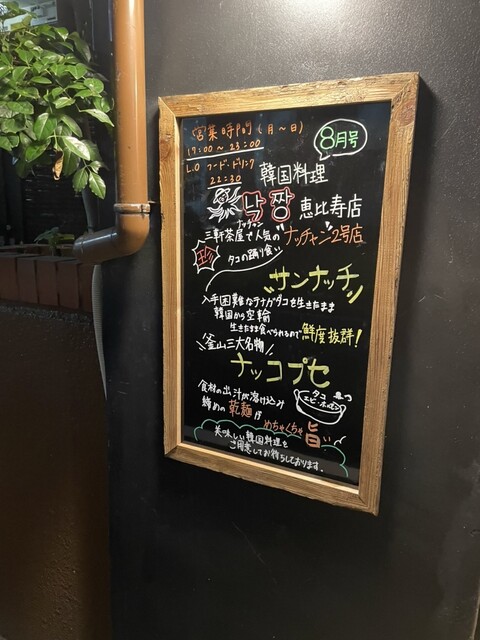 営業時間(月〜日)
17:00〜23:00
8月号
L.O フード・ドリンク
22:30
韓国料理
낙짱 恵比寿店
ナッチャン
三軒茶屋で人気の"ナッチャン"2号店
珍 タコの踊り食い
サンナッチ
入手困難なテナガダコを生きたまま
韓国から空輸
生きたまま食べられるので鮮度抜群!
釜山三大名物
ナッコプセ
食材の出汁が溶け込み
締めの乾麺が
めちゃくちゃ旨い
タコ
エビ・ホルモン
美味しい韓国料理を
ご用意してお待ちしております。